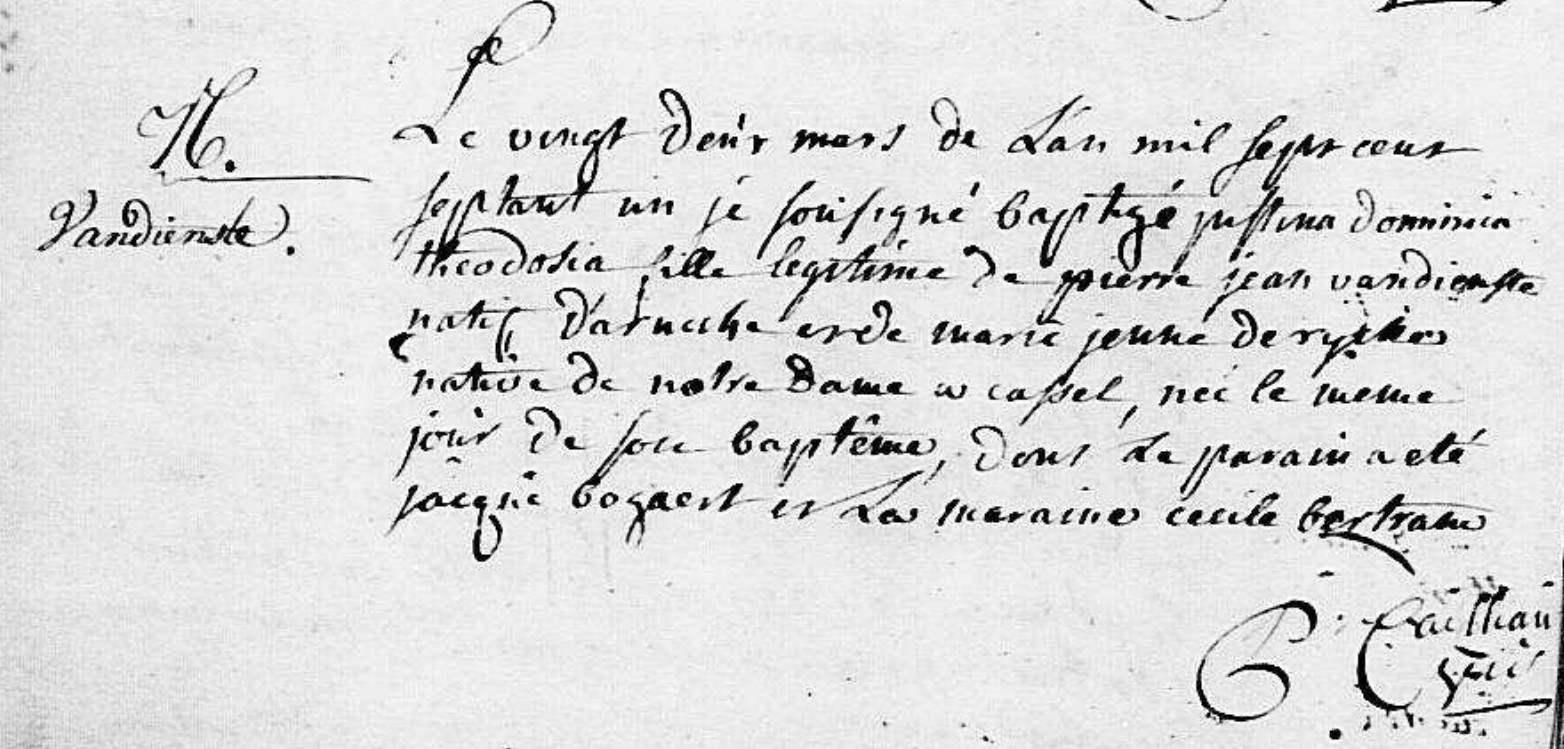 N.
Vandienste.
Le vingt deux mars de L'an mil sept cent
septant un je sousigné baptizé justina dominica
theodosia fille legitime de pierre jean vandienste
natif d'arneche et de marie jenne de rycke
native de notre dame a cassel, neé le meme
jour de son baptême, dont Le parain a eté
jacque bogaert et La maraine cecile bertram